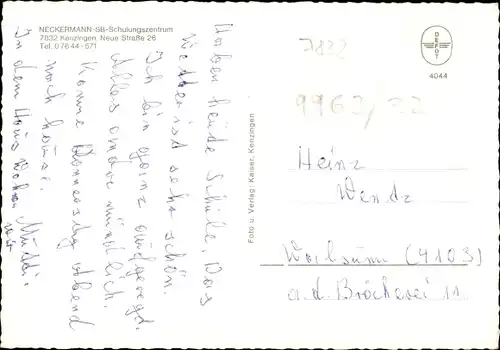 NECKERMANN-SB-Schulungszentrum
7832 Kenzingen, Neue Straße 26
Tel. 0 76 44 - 571
Haben heute Schule, Das
Wetter ist sehr schön.
Ich bin ganz aufgeregt.
Alles andre mündlich.
Komme Donnerstag Abend
nach hause.
In dem Haus
Mutti
Foto u. Verlag: Kaiser, Kenzingen
DEFOT
4044
7832
9963/22
Heinz
(4103)
a.d. 11